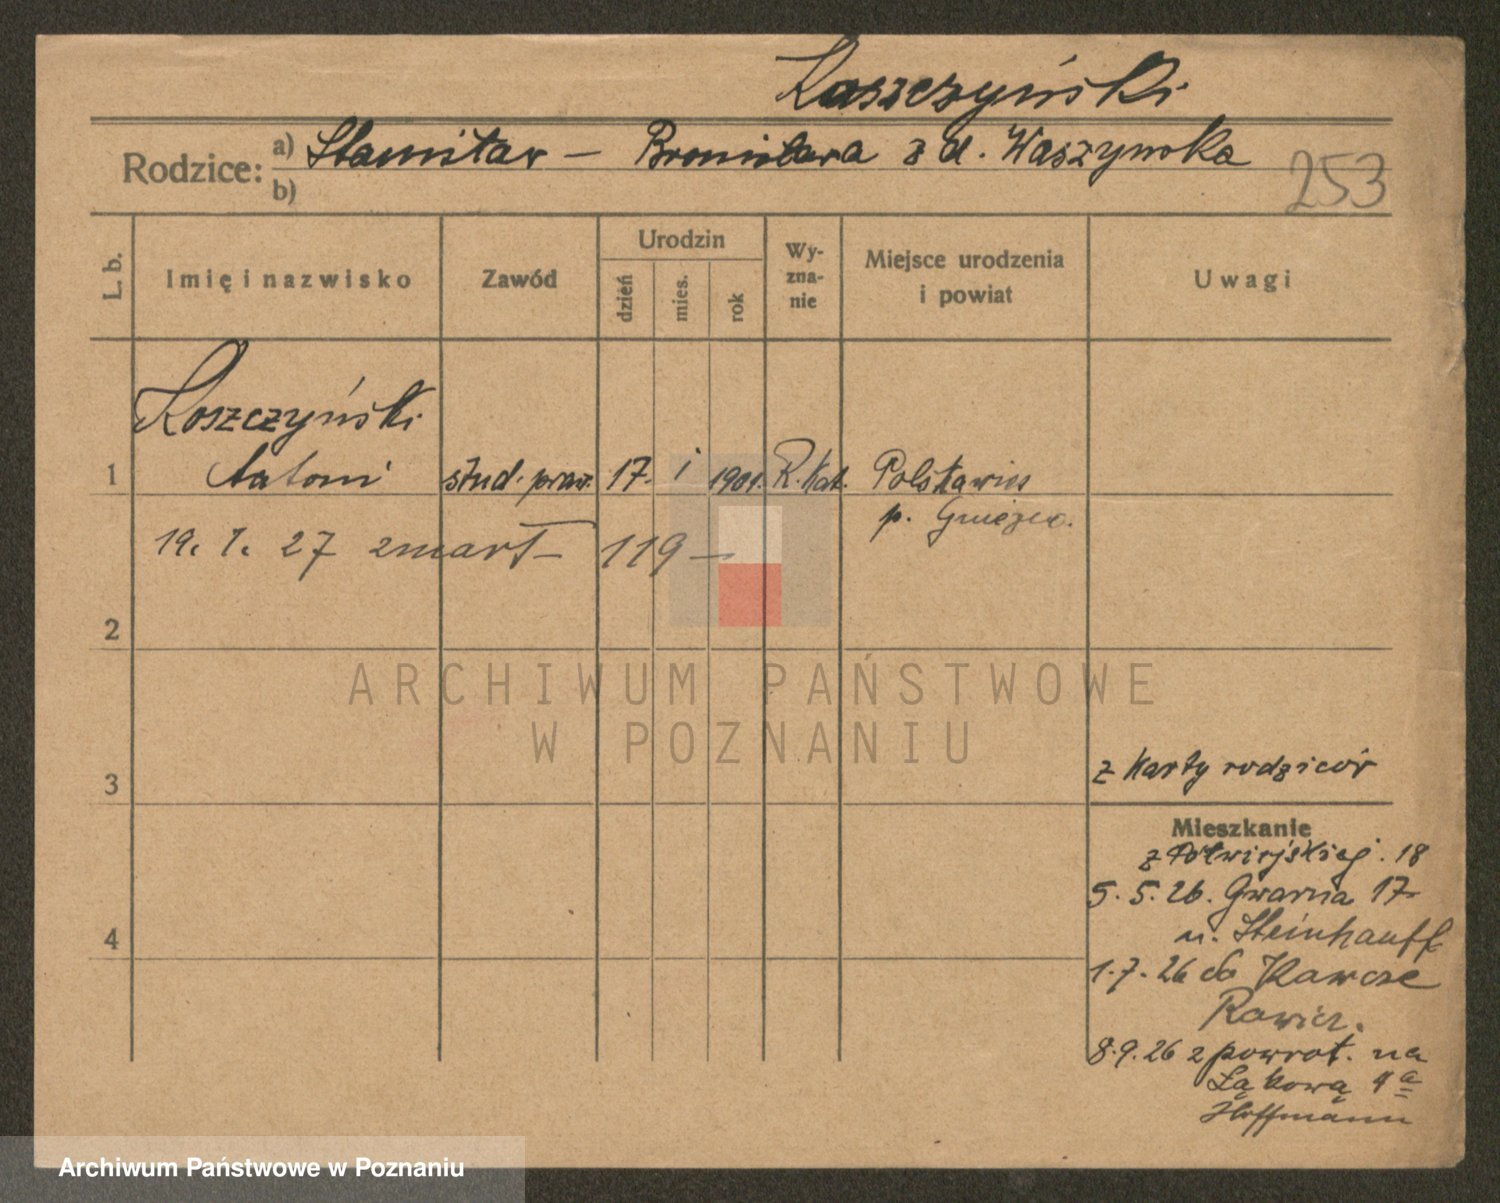 Koszczyński
Rodzice: a) Stanisław – Bronisława z d. Waszyńska
b)
253
L. b.
Imię i nazwisko
Zawód
Urodzin
dzień
mies.
rok
Wy-
zna-
nie
Miejsce urodzenia
i powiat
Uwagi
Koszczyński
1 Antoni stud. praw. 17. I 1901. R. Kat. Polskawieś
p. Gniezno.
19. 1. 27 zmarł – 119 –
2
ARCHIWUM PAŃSTWOWE
W POZNANIU
3 z karty rodziców
Mieszkanie
z Półwiejskiej. 18
5. 5. 26. Gwarna 17
u. Steinhauff
4
1. 7. 26 do
Rawicz.
8. 9. 26 z powrot. na
Łąkową 4a
Hoffmann
Archiwum Państwowe w Poznaniu